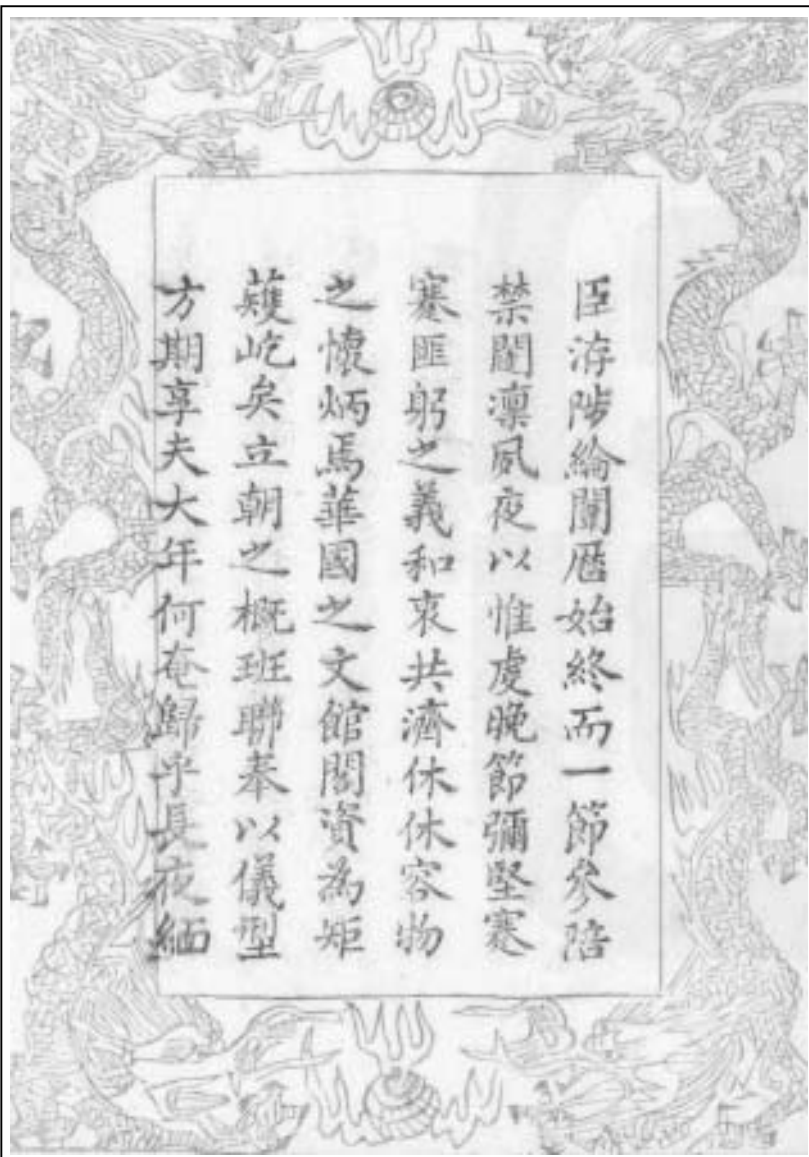 臣洊陟綸闈曆始終而一節參陪
禁闥凜夙夜以惟虔晚節彌堅蹇
蹇匪躬之義和衷共濟休休容物
之懷炳焉華國之文館閣資為矩
矱屹矣立朝之概班聯奉以儀型
方期享夫大年何奄歸乎長夜緬